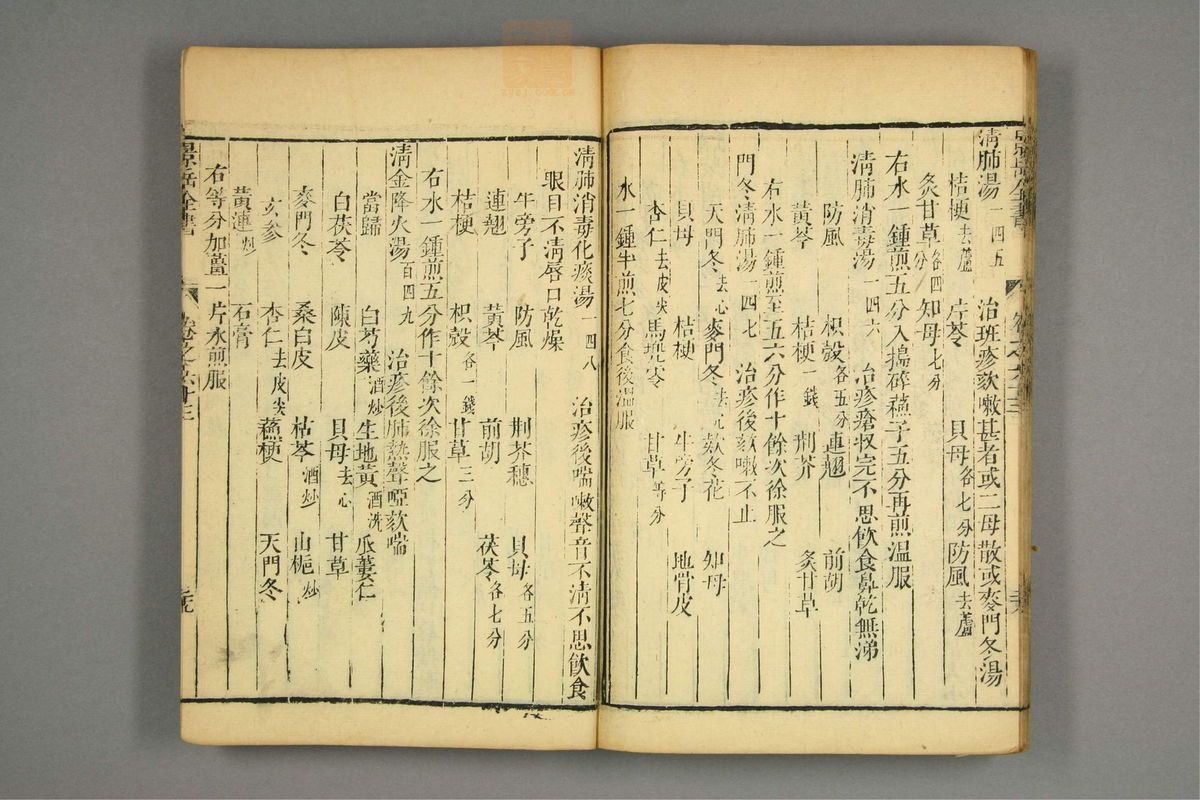 清肺湯一四五　治斑疹欬嗽甚者或二母散或麥門冬湯
桔梗去蘆　片芩　貝母各七分　防風去蘆
炙甘草各四分　知母七分
右水一鍾煎五分入搗碎蘇子五分再煎溫服
清肺消毒湯一四六　治疹瘡收完不思飲食鼻乾無涕
防風　枳殼各五分　連翹　前胡
黃芩　桔梗一錢　荊芥　炙甘草
右水一鍾煎至五六分作十餘次徐服之
門冬清肺湯一四七　治疹後欬嗽不止
天門冬去心　麥門冬去心　欵冬花　知母
貝母　桔梗　牛旁子　地骨皮
杏仁去皮尖　馬兜苓　甘草等分
水一鍾半煎七分食後溫服
清肺消毒化痰湯一四八　治疹後喘嗽聲音不清不思飲食
眼目不淸唇口乾燥
牛旁子　防風　荆芥穗　貝母各五分
連翹　黃芩　前胡　茯苓各七分
桔梗　枳殼各一錢　甘草三分
右水一鍾煎五分作十餘次徐服之
清金降火湯百四九　治疹後肺熱聲啞欬喘
當歸　白芍藥酒炒　生地黃酒洗　瓜蔞仁
白茯苓　陳皮　貝母去心　甘草
麥門冬　桑白皮　枯芩酒炒　山梔炒
玄參　杏仁去皮尖　蘇梗　天門冬
黃連炒　石膏
右等分加薑一片水煎服
景岳全書　卷之六十三